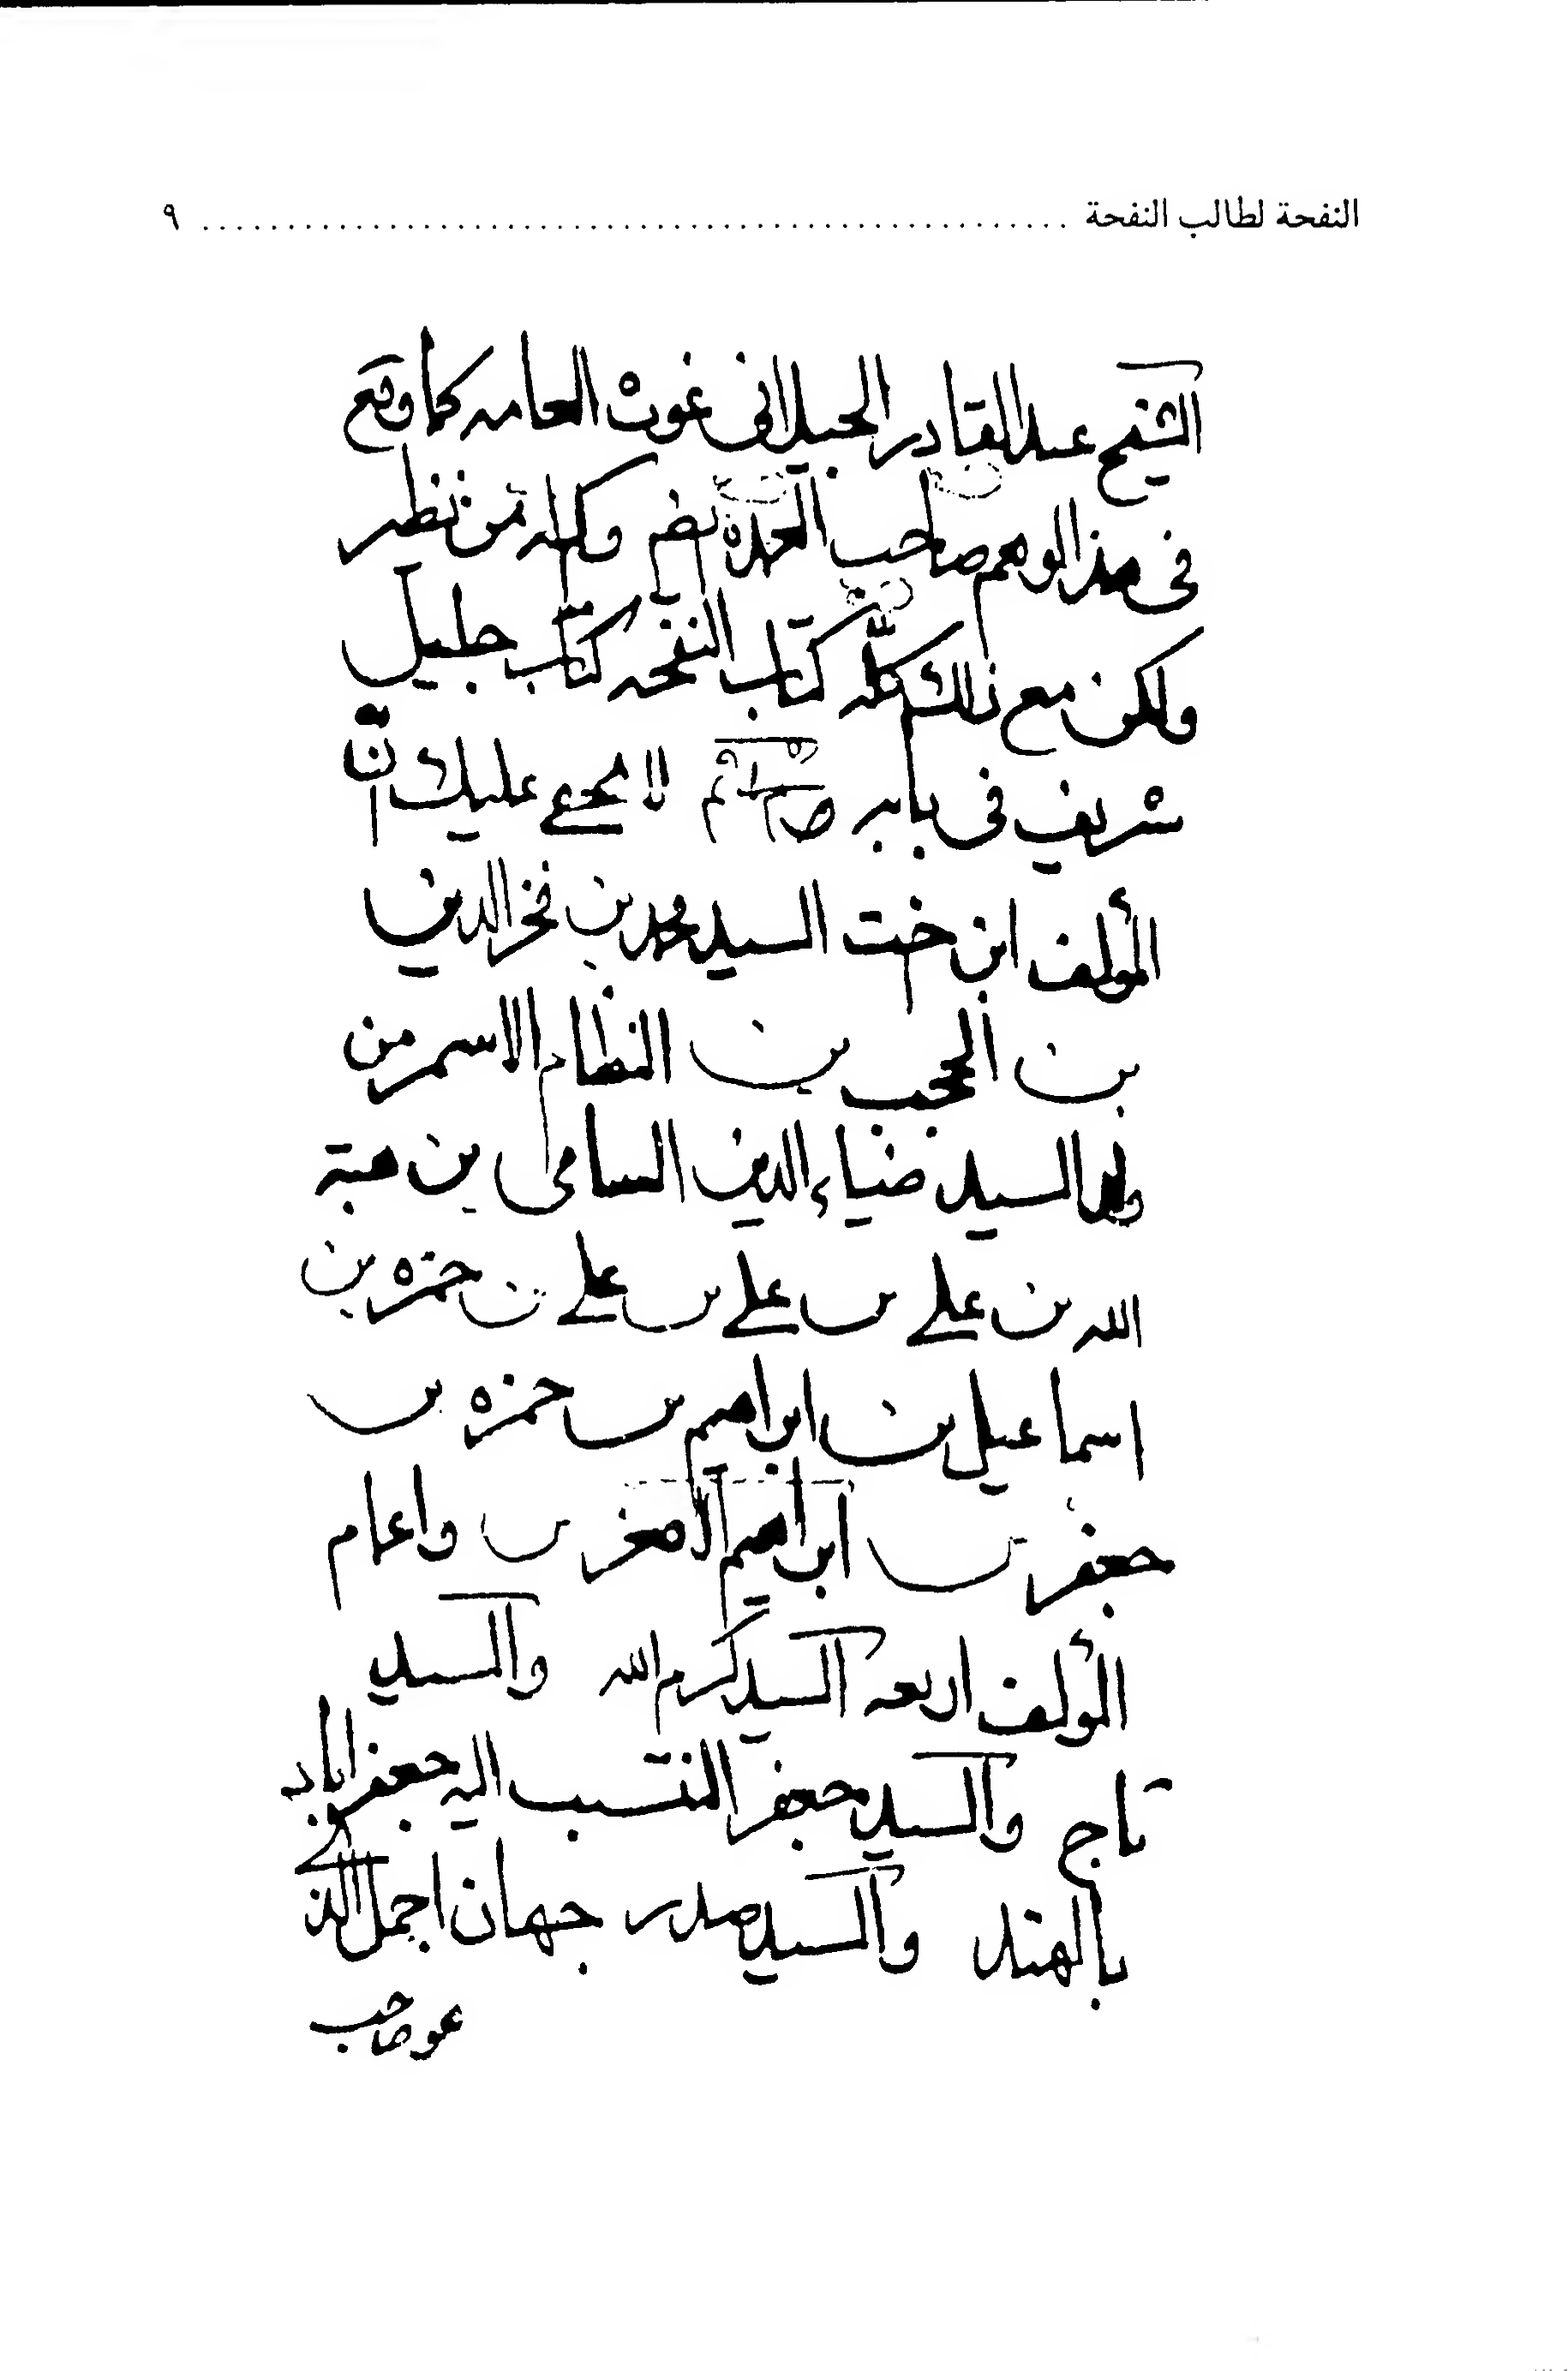 النفحة لطالب النفحة ........ ٩
الشيخ عبد القادر الجيلانى غوث العامه كما وقع
فى هذا الوهم صاحب العمدة وكله نظر
ولكن مع ذلك كله كتاب النفحه كتاب جليل
شريف فى بابه لا عليك ان
المؤلف ابن اخت السيد محمد بن فخر الدين
بن بن النظام الاسمر من
السيد ضياء الدين السامى بن هبة
الله بن على بن على بن على بن حمزه بن
اسماعيل بن ابراهيم بن حمزه بن
جعفر بن ابراهيم الاصغر بن واعمام
المؤلف اربعه السيد كرم الله والسيد
تاج والسيد جعفر المنتسب اليه جعفراباد
بالهند والسيد صدر جهان اجمل